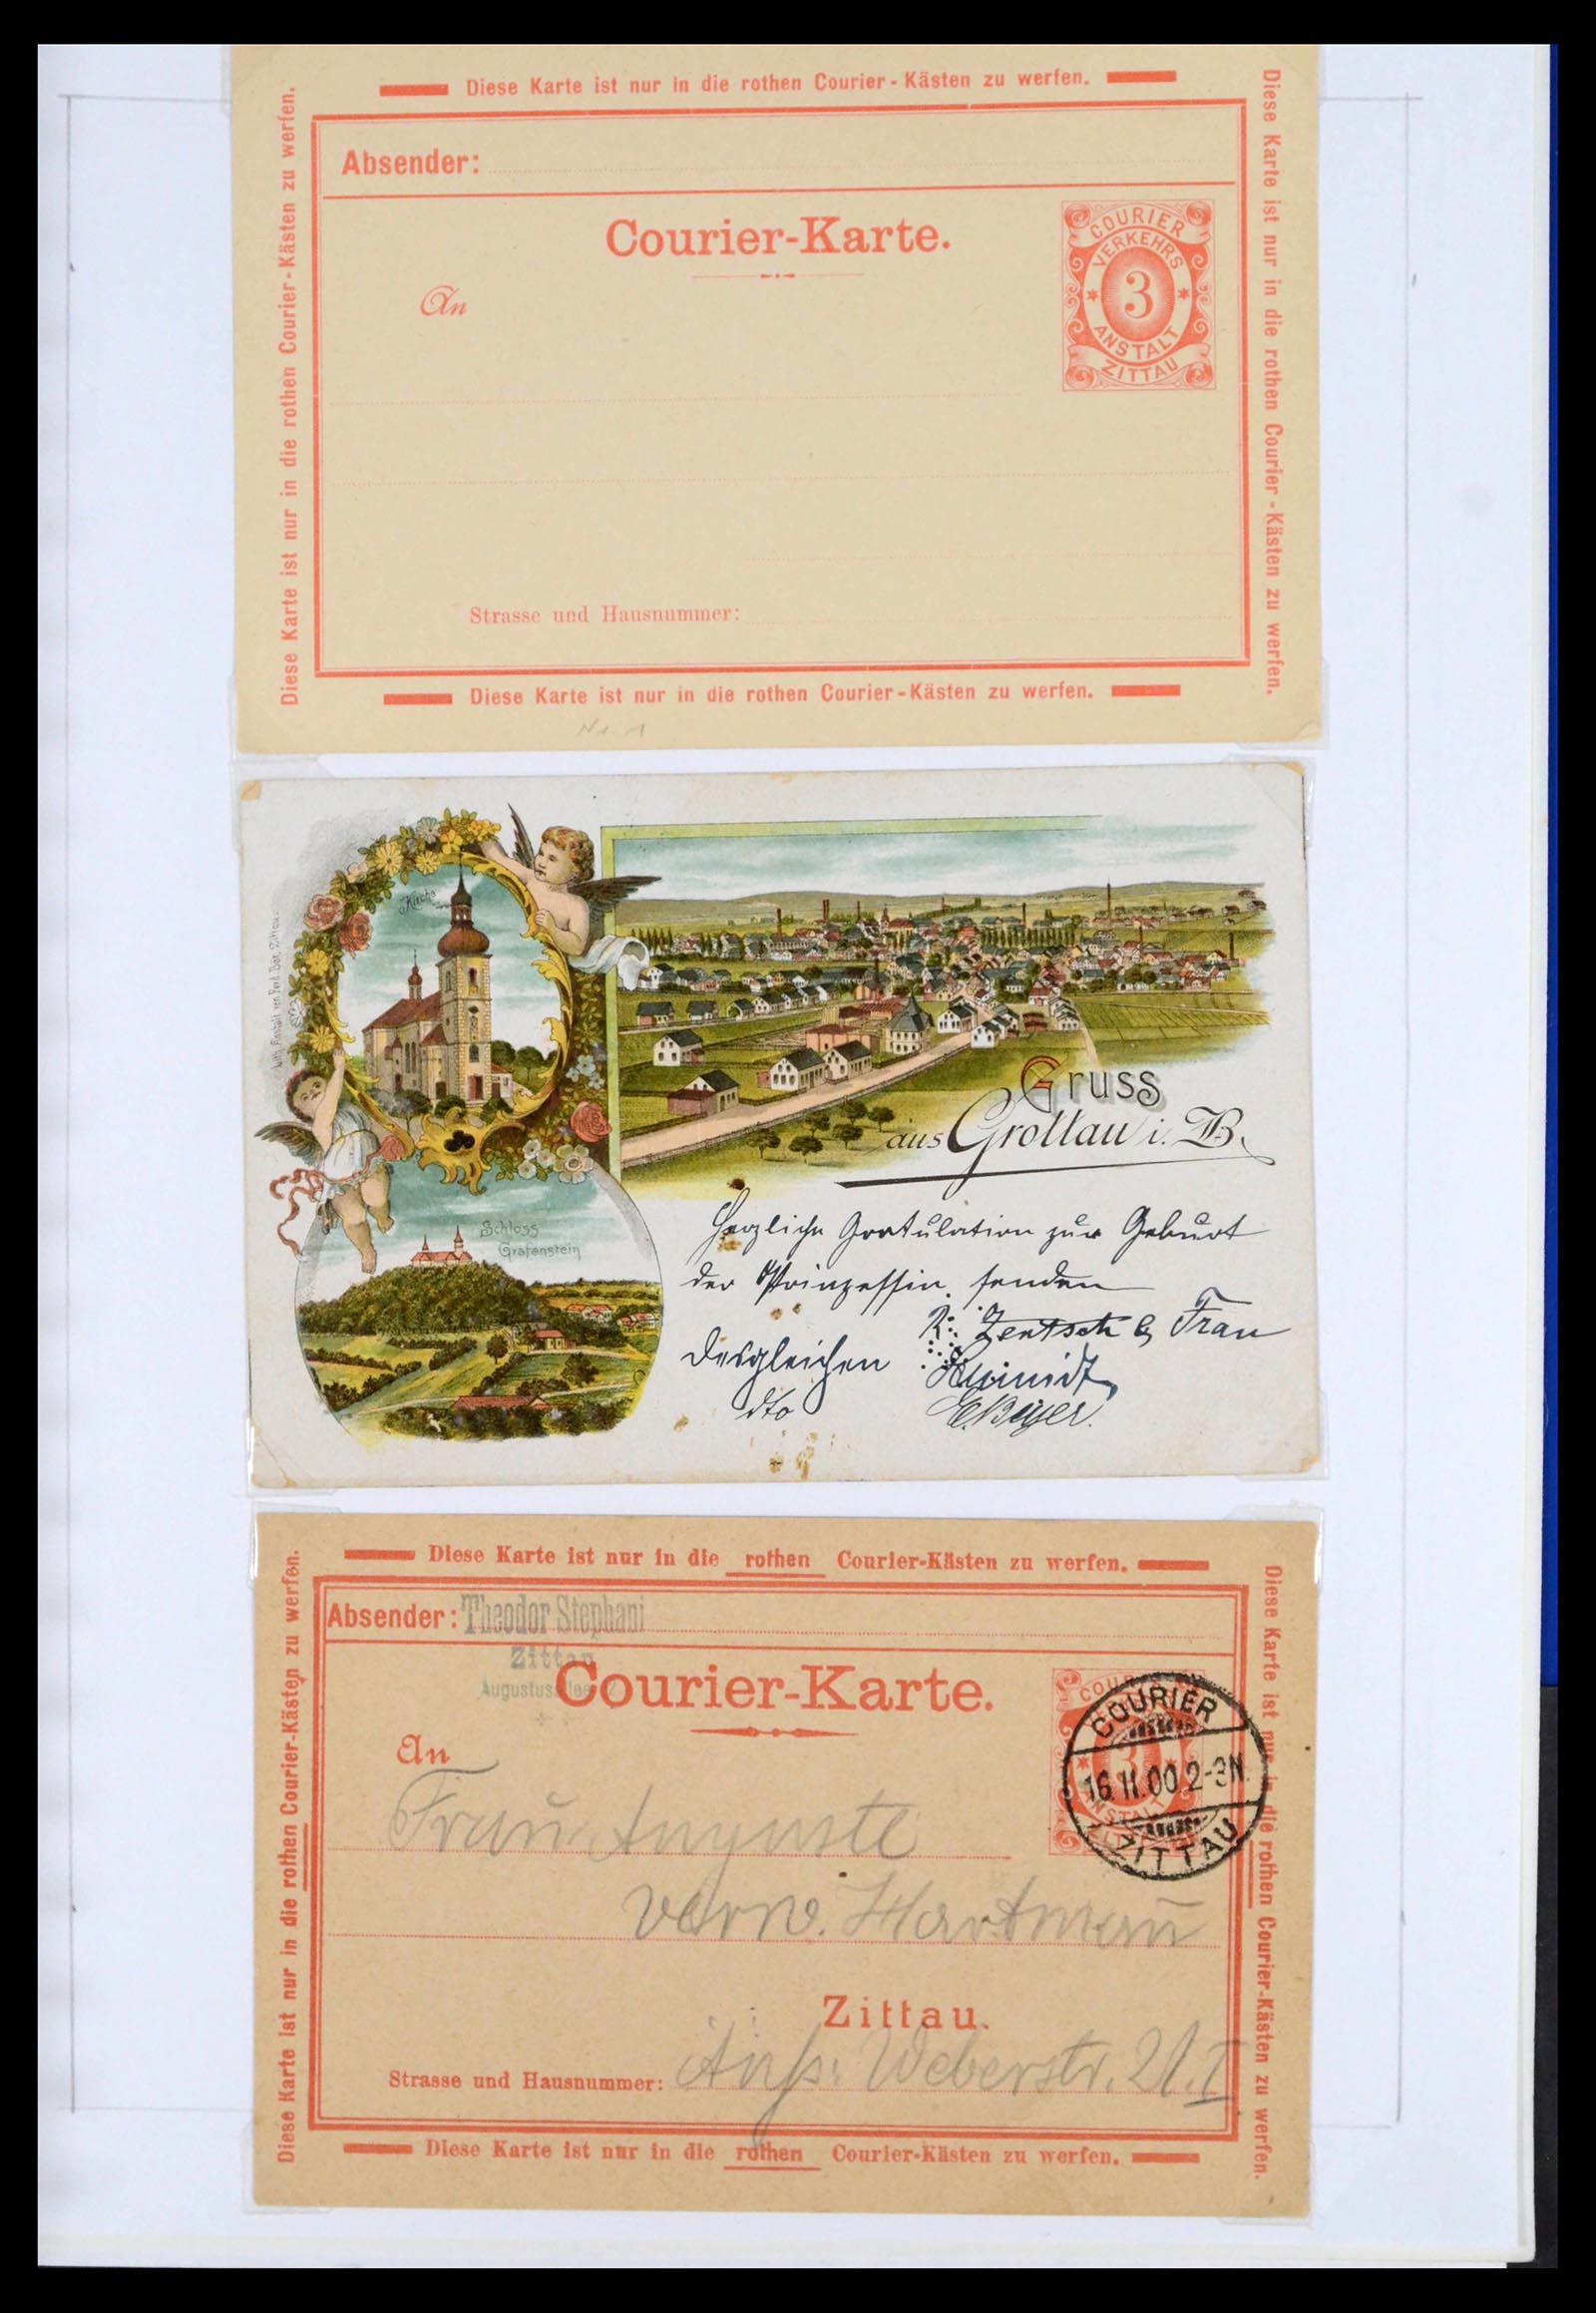 Diese Karte ist nur in die rothen Courier-Kästen zu werfen.
Diese Karte ist nur in die rothen Courier-Kästen zu werfen.
Diese Karte ist nur in die rothen Courier-Kästen zu werfen.
Absender:
Courier-Karte.
COURIER
VERKEHRS
3
ANSTALT
ZITTAU
An
Strasse und Hausnummer:
Diese Karte ist nur in die rothen Courier-Kästen zu werfen.
Nr. 1
Kirche
Schloss
Grafenstein
Gruss
aus Grottau i. B.
Herzliche Gratulation zur Geburt
der Prinzessin senden
R. Zentsch & Frau
Desgleichen Schmidt
dto
Diese Karte ist nur in die rothen Courier-Kästen zu werfen.
Diese Karte ist nur in die rothen Courier-Kästen zu werfen.
Diese Karte ist nur in die rothen Courier-Kästen zu werfen.
Absender: Theodor Stephani
Zittau
Courier-Karte.
COURIER
16.11.00 2-3N.
ZITTAU
3
An
Frau Auguste
verw. Hartmann
Zittau.
Strasse und Hausnummer: Äuß. Weberstr. 21. I
Diese Karte ist nur in die rothen Courier-Kästen zu werfen.